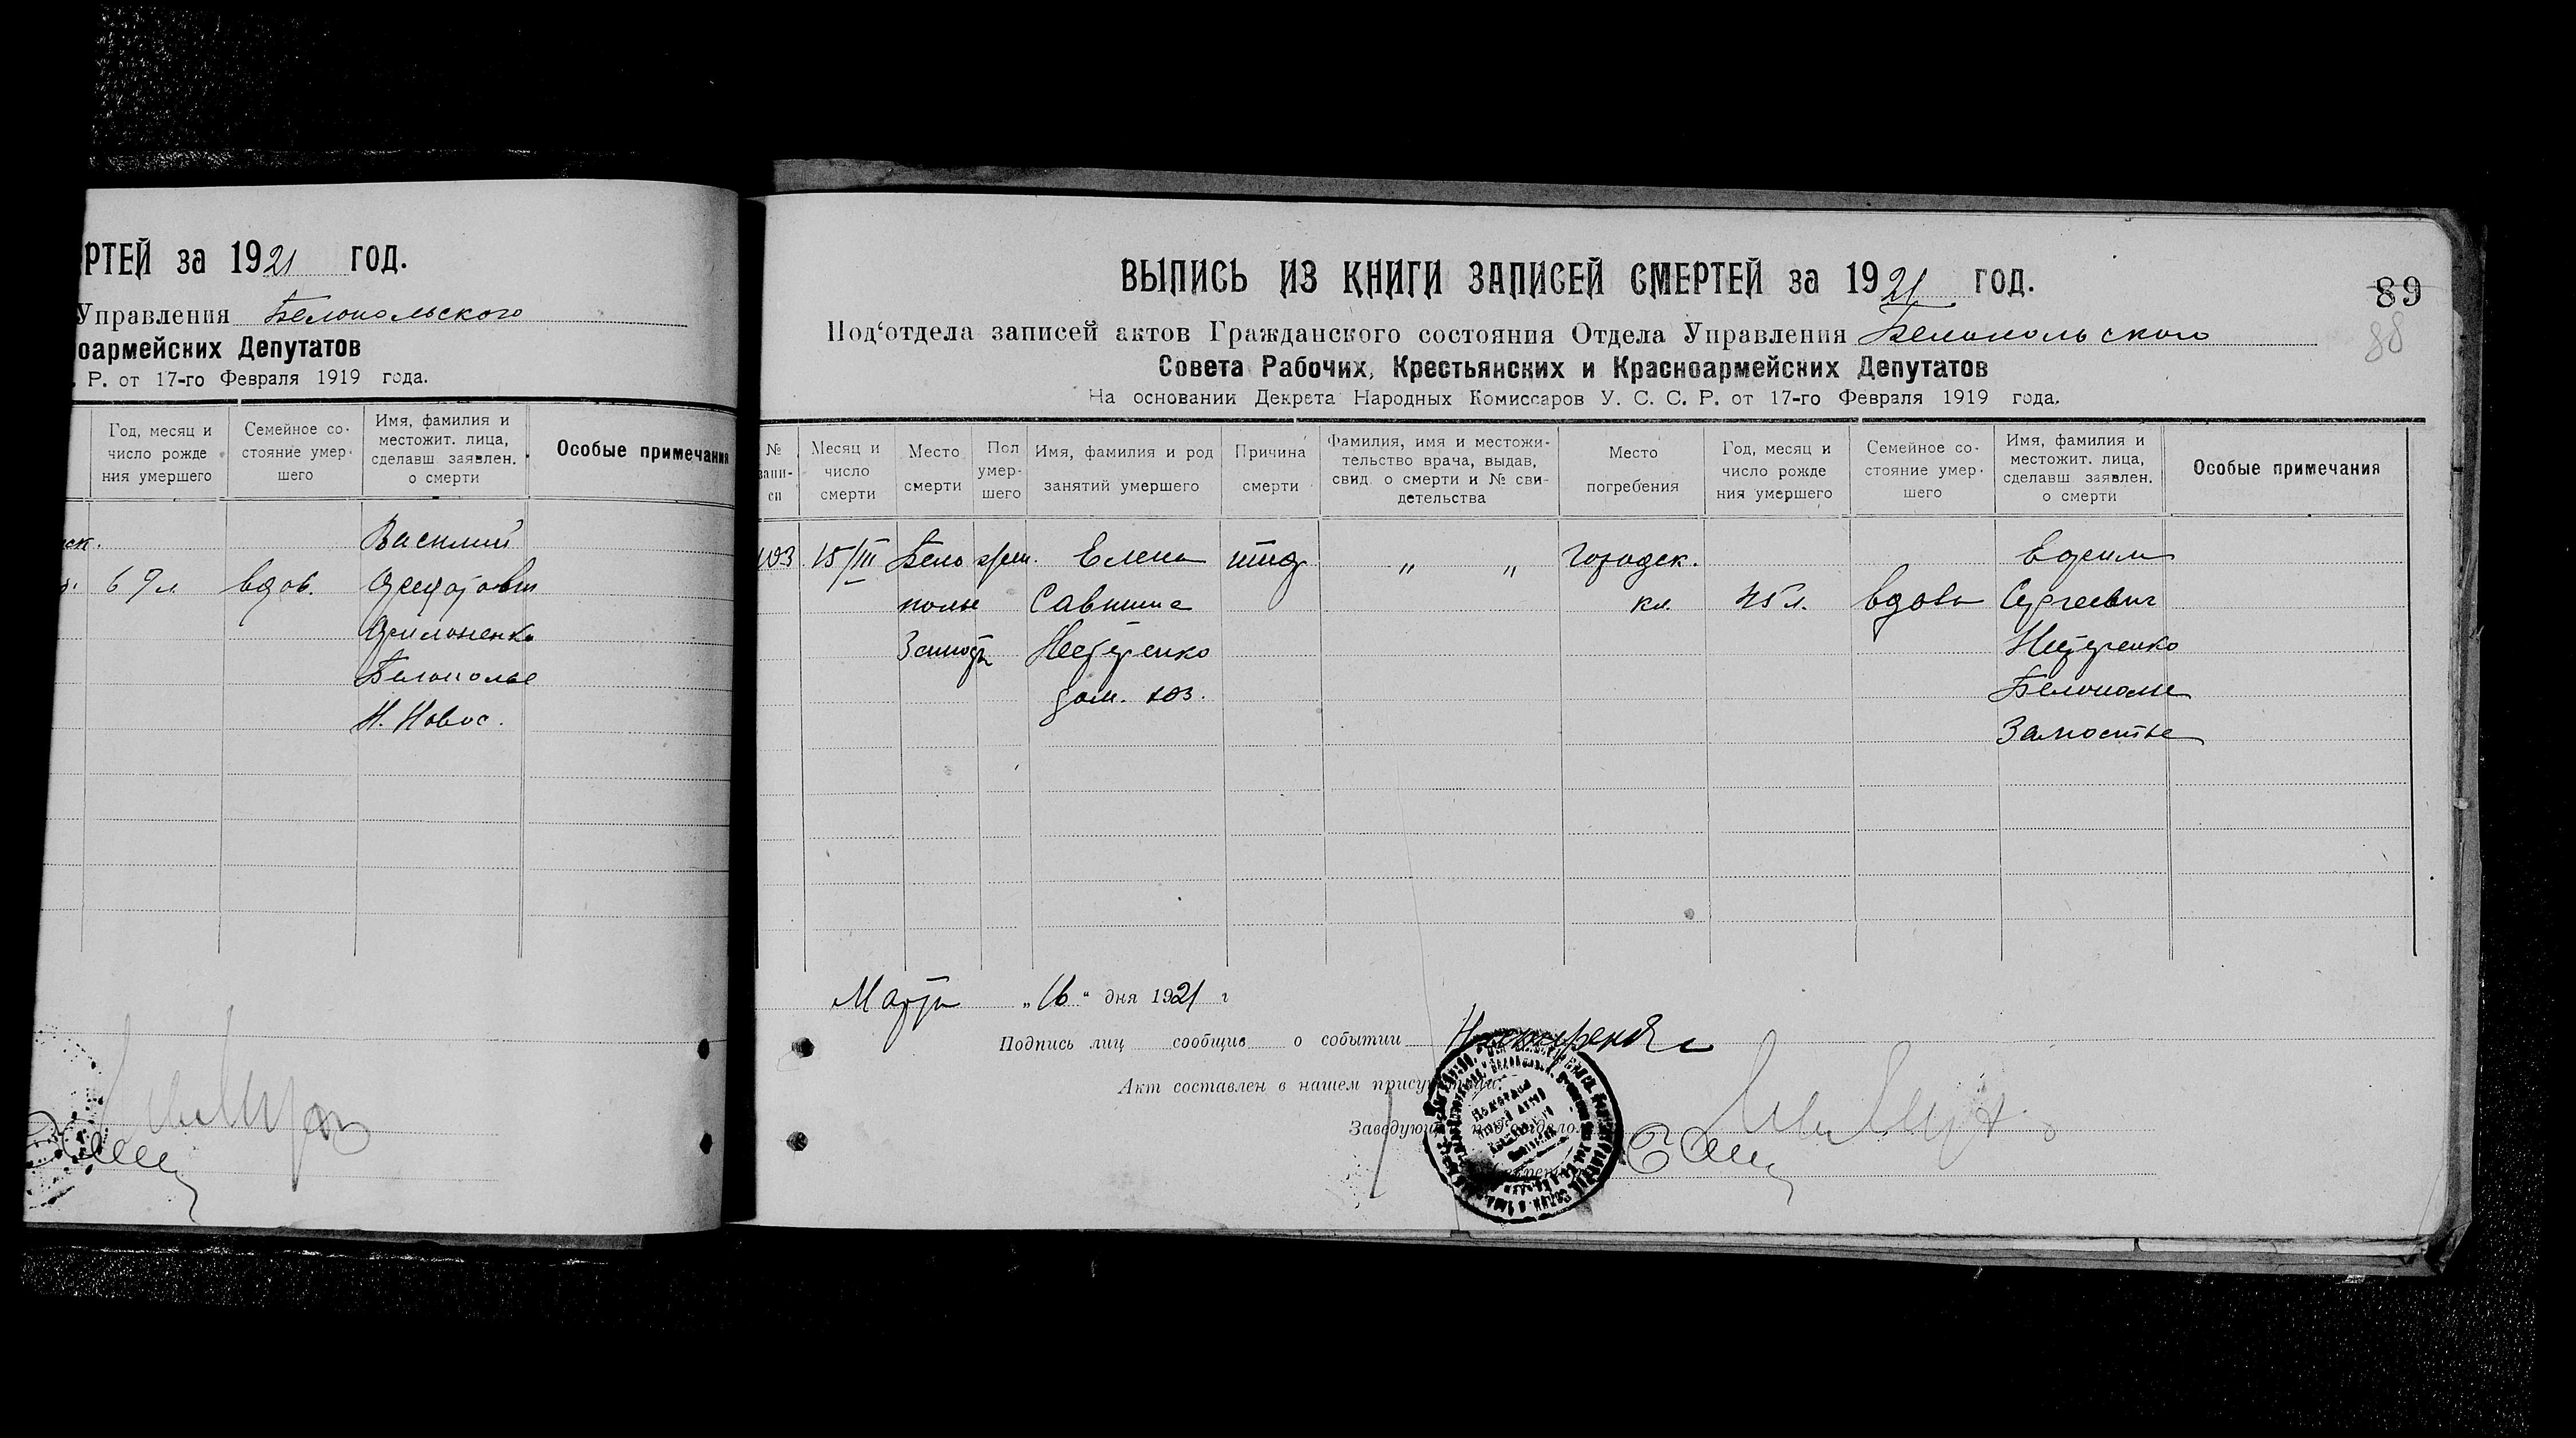 РТЕЙ за 1921 год.
Управления Белопольского
оармейских Депутатов
. Р. от 17-го Февраля 1919 года.
Год, месяц и число рожде ния умершего
Семейное со- стояние умер- шего
Имя, фамилия и местожит. лица, сделавш. заявлен. о смерти
Особые примечания
ск.
Василий
67 л. вдов.
Филоненко
Белополье
Н. Новос.
89
88
ВЫПИСЬ ИЗ КНИГИ ЗАПИСЕЙ СМЕРТЕЙ за 1921 год.
Под‘отдела записей актов Гражданского состояния Отдела Управления Белопольского
Совета Рабочих, Крестьянских и Красноармейских Депутатов
На основании Декрета Народных Комиссаров У. С. С. Р. от 17-го Февраля 1919 года.
№ запи- си
Месяц и число смерти
Место смерти
Пол умер- шего
Имя, фамилия и род занятий умершего
Причина смерти
Фамилия, имя и местожи- тельство врача, выдав, свид. о смерти и № сви- детельства
Место погребения
Год, месяц и число рожде ния умершего
Семейное со- стояние умер- шего
Имя, фамилия и местожит. лица, сделавш заявлен. о смерти
Особые примечания
103 15/III Бело жен. Елена тиф " " Городск. Ефим
полье Саввишна кл. 45 л. вдова Сергеевич
Замость Нестеренко Нестеренко
дом. хоз. Белополье
Замостье
Марта „16“ дня 1921 г
Подпись лиц сообщив о событии Нестеренко
Акт составлен в нашем присутствии: